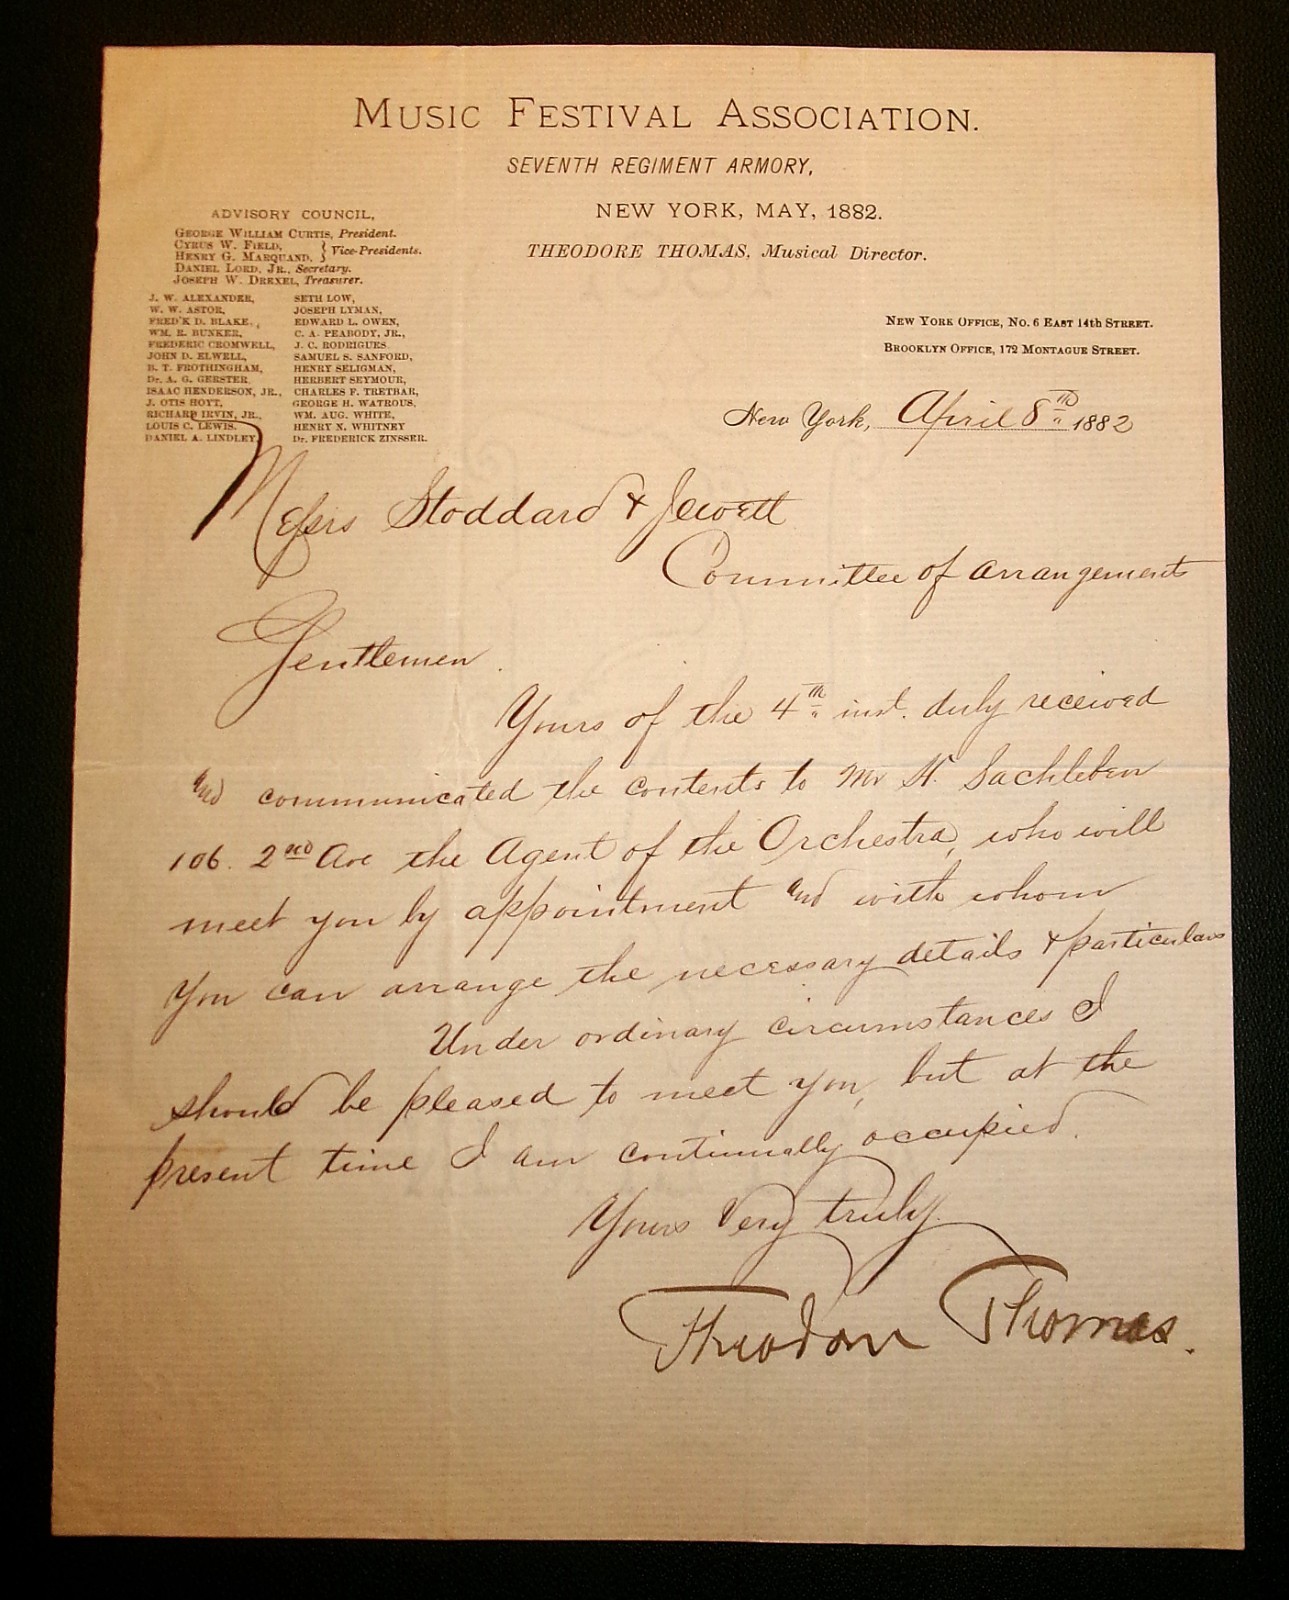 MUSIC FESTIVAL ASSOCIATION.
SEVENTH REGIMENT ARMORY,
NEW YORK, MAY, 1882.
THEODORE THOMAS, Musical Director.
ADVISORY COUNCIL,
GEORGE WILLIAM CURTIS, President.
CYRUS W. FIELD,
HENRY G. MARQUAND,
Vice-Presidents.
DANIEL LORD, JR., Secretary.
JOSEPH W. DREXEL, Treasurer.
J. W. ALEXANDER,
W. W. ASTOR,
FRED'K D. BLAKE,
WM. R. BUNKER,
FREDERIC CROMWELL,
JOHN D. ELWELL,
B. T. FROTHINGHAM,
Dr. A. G. GERSTER,
ISAAC HENDERSON, JR.,
J. OTIS HOYT,
RICHARD IRVIN, JR.,
LOUIS C. LEWIS,
DANIEL A. LINDLEY,
SETH LOW,
JOSEPH LYMAN,
EDWARD L. OWEN,
C. A. PEABODY, JR.,
J. C. RODRIGUES,
SAMUEL S. SANFORD,
HENRY SELIGMAN,
HERBERT SEYMOUR,
CHARLES F. TRETBAR,
GEORGE H. WATROUS,
WM. AUG. WHITE,
HENRY N. WHITNEY
Dr. FREDERICK ZINSSER.
NEW YORK OFFICE, No. 6 EAST 14th STREET.
BROOKLYN OFFICE, 172 MONTAGUE STREET.
New York, April 8th 1882
Messrs Stoddard & Jewett
Committee of arrangements
Gentlemen.
Yours of the 4th inst. duly received
and communicated the contents to Mr H. Sachleben
106. 2nd Ave the Agent of the Orchestra, who will
meet you by appointment and with whom
you can arrange the necessary details & particulars
Under ordinary circumstances I
should be pleased to meet you, but at the
present time I am continually occupied.
Yours Very truly.
Theodore Thomas.